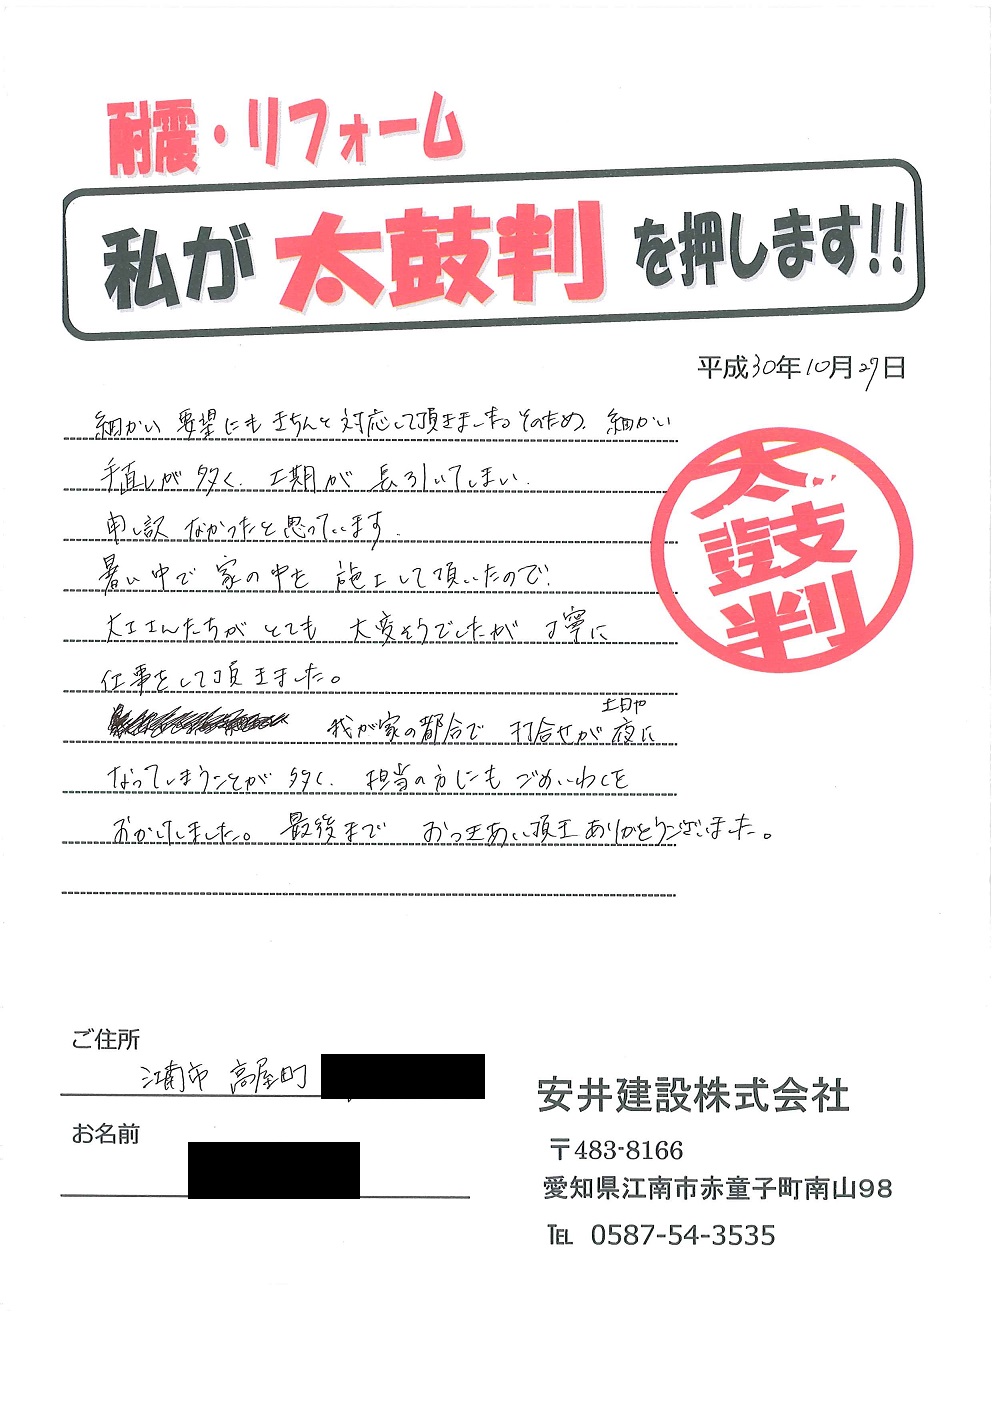 耐震・リフォーム
私が太鼓判を押します!!
平成30年10月27日
細かい 要望にも きちんと 対応して頂きました。そのため、細かい
手直しが 多く、工期が 長引いてしまい、
申し訳 なかったと思っています。
暑い中で 家の中を 施工して頂いたので、
大工さんたちが とても 大変そうでしたが 丁寧に
仕事をして頂きました。
我が家の都合で 打合せが 土日や夜に
なってしまうことが 多く、担当の方にも ごめいわくを
おかけしました。最後まで おつきあい頂き ありがとうございました。
太鼓判
ご住所
江南市 高屋町
お名前
安井建設株式会社
〒483-8166
愛知県江南市赤童子町南山98
℡ 0587-54-3535